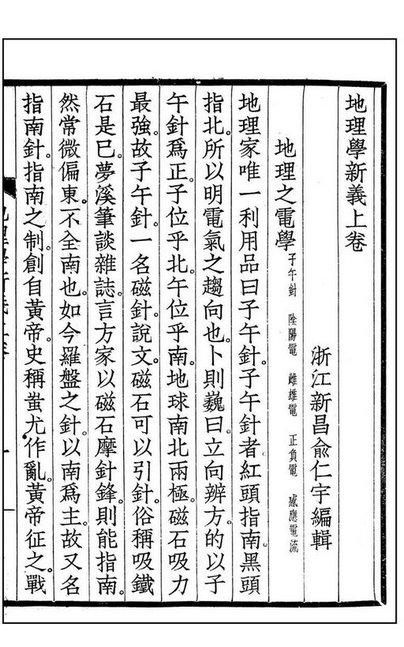 地理學新義上卷
浙江新昌俞仁宇編輯
地理之電學 子午針 陰陽電 雌雄電 正負電 感應電流
地理家唯一利用品曰子午針。子午針者紅頭指南黑頭
指北。所以明電氣之趨向也。卜則巍曰立向辨方的以子
午針爲正。子位乎北。午位乎南。地球南北兩極。磁石吸力
最強。故子午針一名磁針。說文磁石可以引針。俗稱吸鐵
石是已。夢溪筆談雜誌言方家以磁石摩針鋒。則能指南。
然常微偏東。不全南也。如今羅盤之針。以南爲主。故又名
指南針。指南之制。創自黃帝。史稱蚩尤作亂。黃帝征之。戰